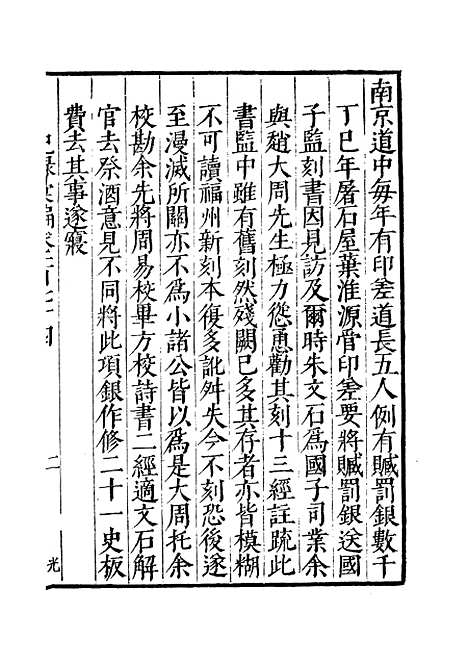 南京道中每年有印差道長五人例有贓罰銀數千
丁巳年屠石屋葉淮源管印差要將贓罰銀送國
子監刻書因見訪及爾時朱文石為國子司業余
與趙大周先生極力慫慂勸其刻十三經註疏此
書監中雖有舊刻然殘闕已多其存者亦皆模糊
不可讀福州新刻本復多訛舛失今不刻恐後遂
至漫滅所關亦不為小諸公皆以為是大周托余
校勘余先將周易校畢方校詩書二經適文石解
官去祭酒意見不同將此項銀作修二十一史板
費去其事遂寢
二
光